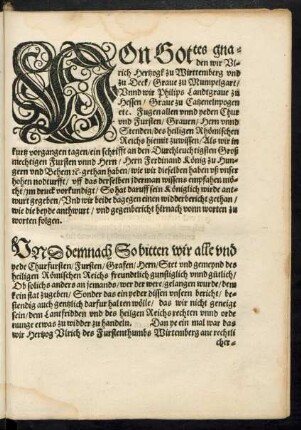 VOn Gottes gna-
den wir Vl-
rich Hertzogk zu Wirttemberg vnd
zu Deck/ Graue zu Mumpelgart/
Vnnd wir Philips Landtgraue zu
Hessen/ Graue zu Catzenelnpogen
etc. Fugen allen vnnd yeden Chur
vnd Fursten/ Grauen/ Hern vnnd
Stenden/ des heiligen Rhömischen
Reichs hiemit zuwissen/ Als wir in
kurtz vorgangen tagen/ ein schrifft an den Durchleuchtigsten Groß
mechtigen Fursten vnnd Hern/ Hern Ferdinand König zu Hun-
gern vnd Behem ꝛc. gethan haben/ wie wir dieselben haben vß vnser
hohen nodturfft/ vff das derselben yderman wissens empfahen mö-
cht/ im druck vorkundigt/ So hat daruff sein Königlich wirde ant-
wurt gegeben/ Vnd wir beide dagegen einen widderbericht gethan/
wie die beyde anthwurt/ vnd gegenbericht hirnach vonn worten zu
worten folgen.
VNDdemnach So bitten wir alle vnd
yede Churfursten/ Fursten/ Grafen/ Hern/ Stet vnd gemeynd des
heiligen Römischen Reichs freundtlich gunstiglich vnnd gütlich/
Ob solichs anders an jemands/ wer der wer/ gelangen wurde/ dem
kein stat zugeben/ Sonder das ein yeder dissen vnsern bericht/ be-
stendig auch gentlich darfur halten wölle/ das wir nicht geneigt
sein/ dem Lantfridden vnd des heilgen Reichs rechten vnnd orde
nunge etwas zu widder zu handeln. Dan ye ein mal war das
wir Hertzog Vlrich des Furstenthumbs Wirtemberg ane rechtli
cher-